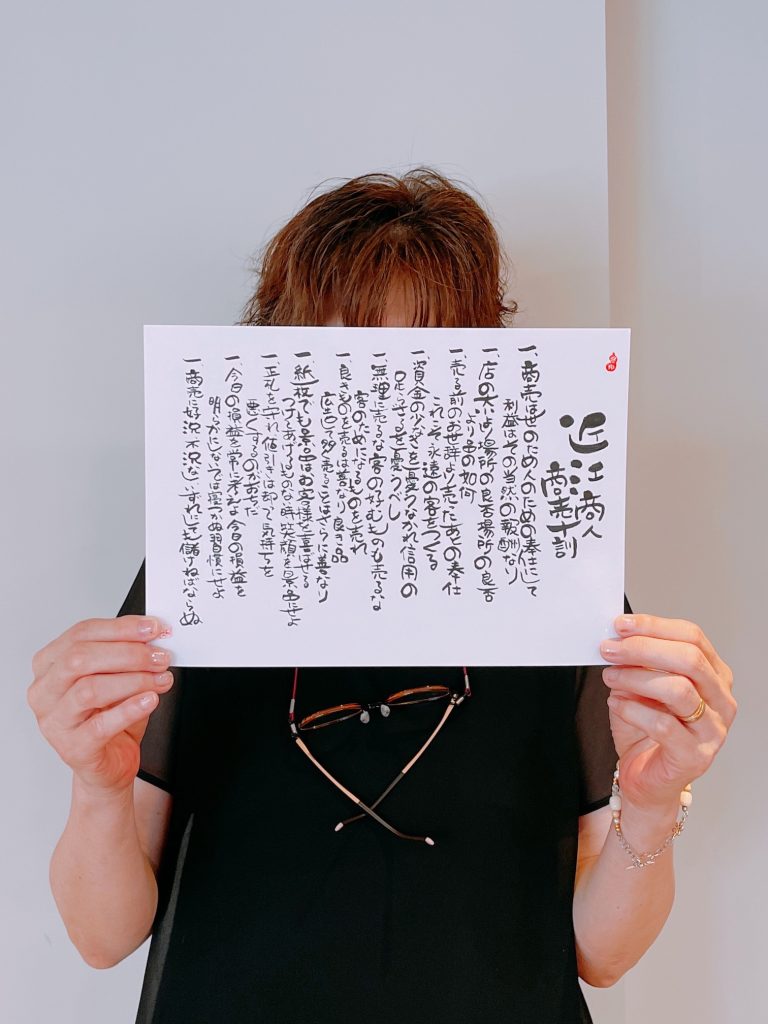 近江商人
商売十訓
一、商売は世のため人のための奉仕にして
利益はその当然の報酬なり
一、店の大小より場所の良否場所の良否
より品の如何
一、売る前のお世辞より売ったあとの奉仕
これこそ永遠の客をつくる
一、資金の少なきを憂うなかれ信用の
足らざるを憂うべし
一、無理に売るな客の好むものも売るな
客のためになるものを売れ
一、良きものを売るは善なり良き品
広告して多く売ることはさらに善なり
一、紙一枚でも景品はお客様を喜ばせる
つけてあげるものない時笑顔を景品にせよ
一、正札を守れ値引きは却って気持ちを
悪くするのがおちだ
一、今日の損益を常に考えよ今日の損益を
明らかにしないでは寝つかぬ習慣にせよ
一、商売に好況不況なしいずれにしても儲けねばならぬ